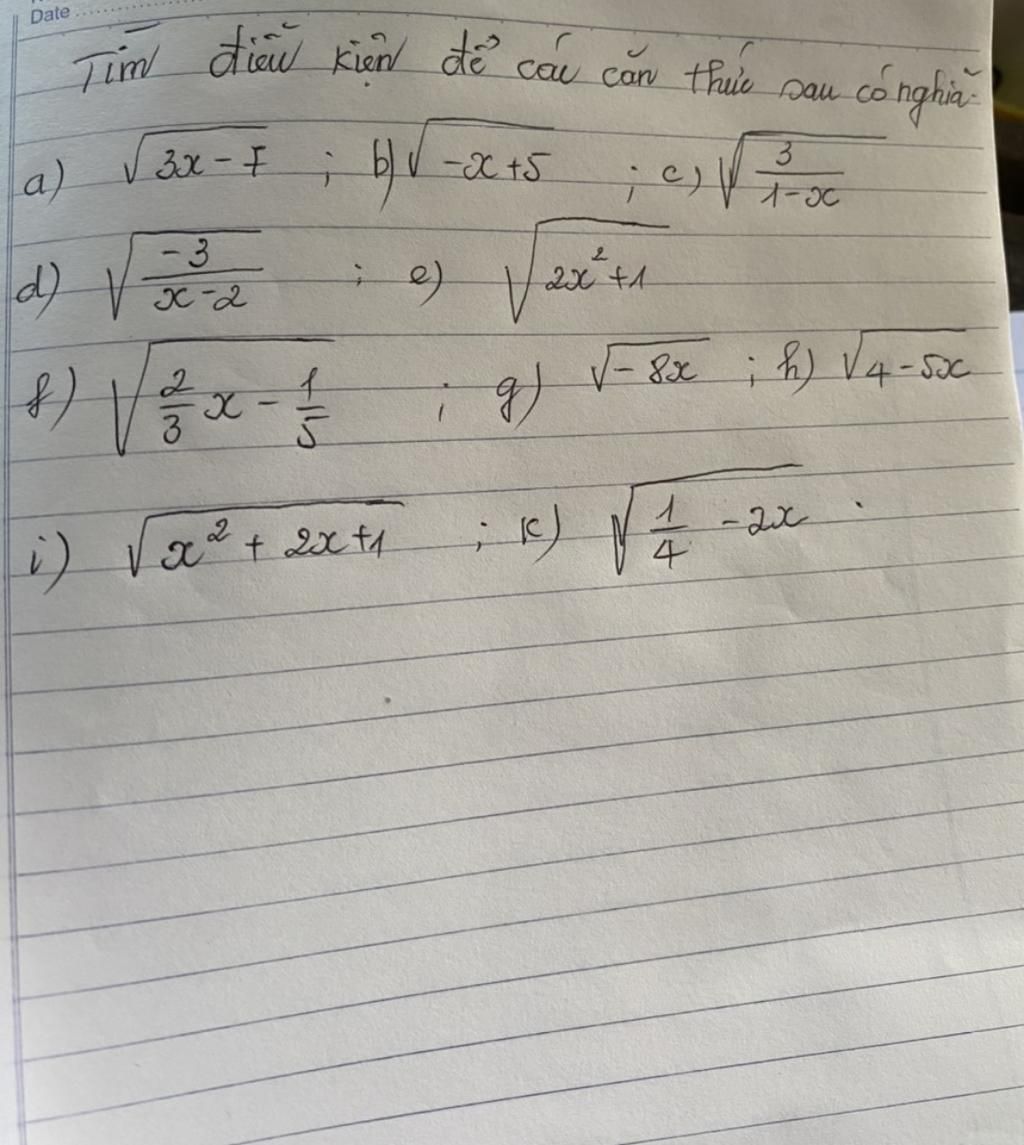 Date
Tìm điều kiện để các căn thức sau có nghĩa.
a) √(3x - 7) ; b) √(-x + 5) ; c) √(3/(1-x))
d) √(-3/(x-2)) ; e) √(2x² + 1)
f) √(2/3 x - 1/5) ; g) √(-8x) ; h) √(4 - 5x)
i) √(x² + 2x + 1) ; k) √(1/4 - 2x) .